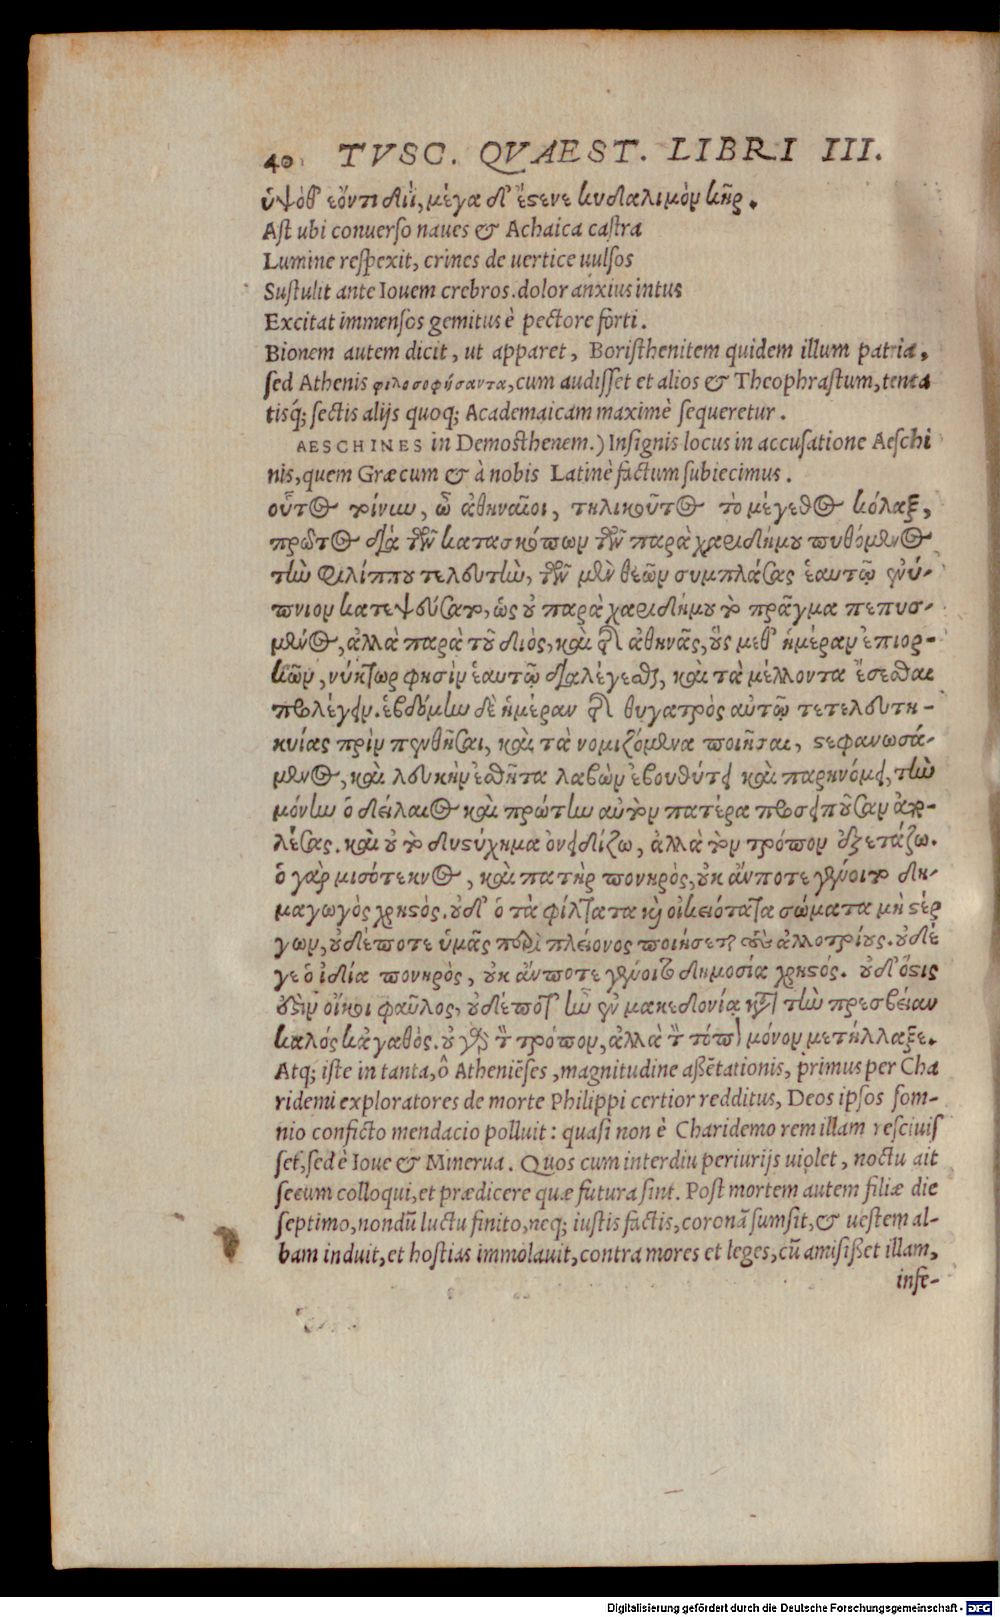 40 TVSC. QVAEST. LIBRI III.
ὑψόθ' ἐόντι διί, μέγα δ' ἔστενε κυδάλιμὸν κῆρ.
Ast ubi conuerso naues & Achaica castra
Lumine respexit, crines de uertice uulsos
Sustulit ante Iouem crebros. dolor anxius intus
Excitat immensos gemitus è pectore forti.
Bionem autem dicit, ut apparet, Boristhenitem quidem illum patria,
sed Athenis φιλοσοφήσαντα, cum audisset et alios & Theophrastum, tenta
tisq́; sectis alijs quoq; Academaicam maximè sequeretur.
AESCHINES in Demosthenem.) Insignis locus in accusatione Aeschi
nis, quem Græcum & à nobis Latinè factum subiecimus.
οὗτος τοίνυν, ὦ ἀθηναῖοι, τηλικοῦτος τὸ μέγεθος κόλαξ,
πρῶτος διὰ τῶν κατασκόπων τῶν παρὰ χαριδήμου πυθόμενος
τὴν φιλίππου τελευτὴν, τῶν μὲν θεῶν συμπλάσας ἑαυτῷ ἐνύ-
πνιον κατεψεύσατο, ὡς οὐ παρὰ χαριδήμου τὸ πρᾶγμα πεπυσ-
μένος, ἀλλὰ παρὰ τοῦ διὸς, καὶ τῆς ἀθηνᾶς, οὓς μεθ' ἡμέραν ἐπιορ-
κῶν, νύκτωρ φησὶν ἑαυτῷ διαλέγεσθαι, καὶ τὰ μέλλοντα ἔσεσθαι
προλέγειν. ἑβδόμην δὲ ἡμέραν τῆς θυγατρὸς αὐτῷ τετελευτη-
κυίας πρὶν πενθῆσαι, καὶ τὰ νομιζόμενα ποιῆσαι, στεφανωσά-
μενος, καὶ λευκὴν ἐσθῆτα λαβὼν ἐβουθύτει καὶ παρηνόμει, τὴν
μόνην ὁ δείλαιος καὶ πρώτην αὐτὸν πατέρα προσειποῦσαν ἀπο-
λέσας. καὶ οὐ τὸ δυστύχημα ὀνειδίζω, ἀλλὰ τὸν τρόπον ἐξετάζω.
ὁ γὰρ μισότεκνος, καὶ πατὴρ πονηρὸς, οὐκ ἄν ποτε γένοιτο δη-
μαγωγὸς χρηστὸς. οὐδ' ὁ τὰ φίλτατα καὶ οἰκειότατα σώματα μὴ στέρ
γων, οὐδέποτε ὑμᾶς περὶ πλείονος ποιήσεται τοὺς ἀλλοτρίους. οὐδέ
γε ὁ ἰδίᾳ πονηρὸς, οὐκ ἄν ποτε γένοιτο δημοσίᾳ χρηστός. οὐδ' ὅστις
ἐστὶν οἴκοι φαῦλος, οὐδέποτ' ἦν ἐν μακεδονίᾳ κατὰ τὴν πρεσβείαν
καλός κἀγαθὸς. οὐ γὰρ τὸν τρόπον, ἀλλὰ τὸν τόπον μόνον μετήλλαξε.
Atq; iste in tanta, ô Atheniẽses, magnitudine aßẽtationis, primus per Cha
ridemi exploratores de morte Philippi certior redditus, Deos ipsos som-
nio conficto mendacio polluit: quasi non è Charidemo rem illam resciuis
set, sed è Ioue & Minerua. Quos cum interdiu periurijs uiolet, noctu ait
secum colloqui, et prædicere quæ futura sint. Post mortem autem filiæ die
septimo, nondũ luctu finito, neq; iustis factis, coronã sumsit, & uestem al-
bam induit, et hostias immolauit, contra mores et leges, cũ amisißet illam,
infe-
Digitalisierung gefördert durch die Deutsche Forschungsgemeinschaft - DFG